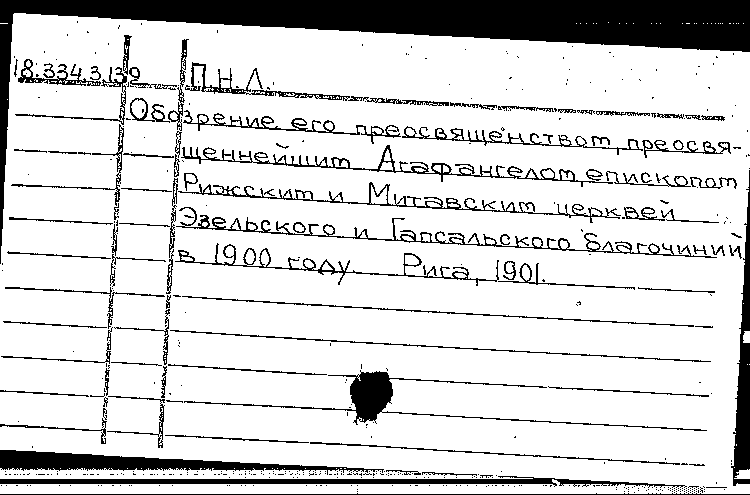 18.334.3.139 П.Н.Л.
Обозрение его преосвященством, преосвя-
щеннейшим Агафангелом, епископом
Рижским и Митавским церквей
Эзельского и Гапсальского благочиний
в 1900 году. Рига, 1901.